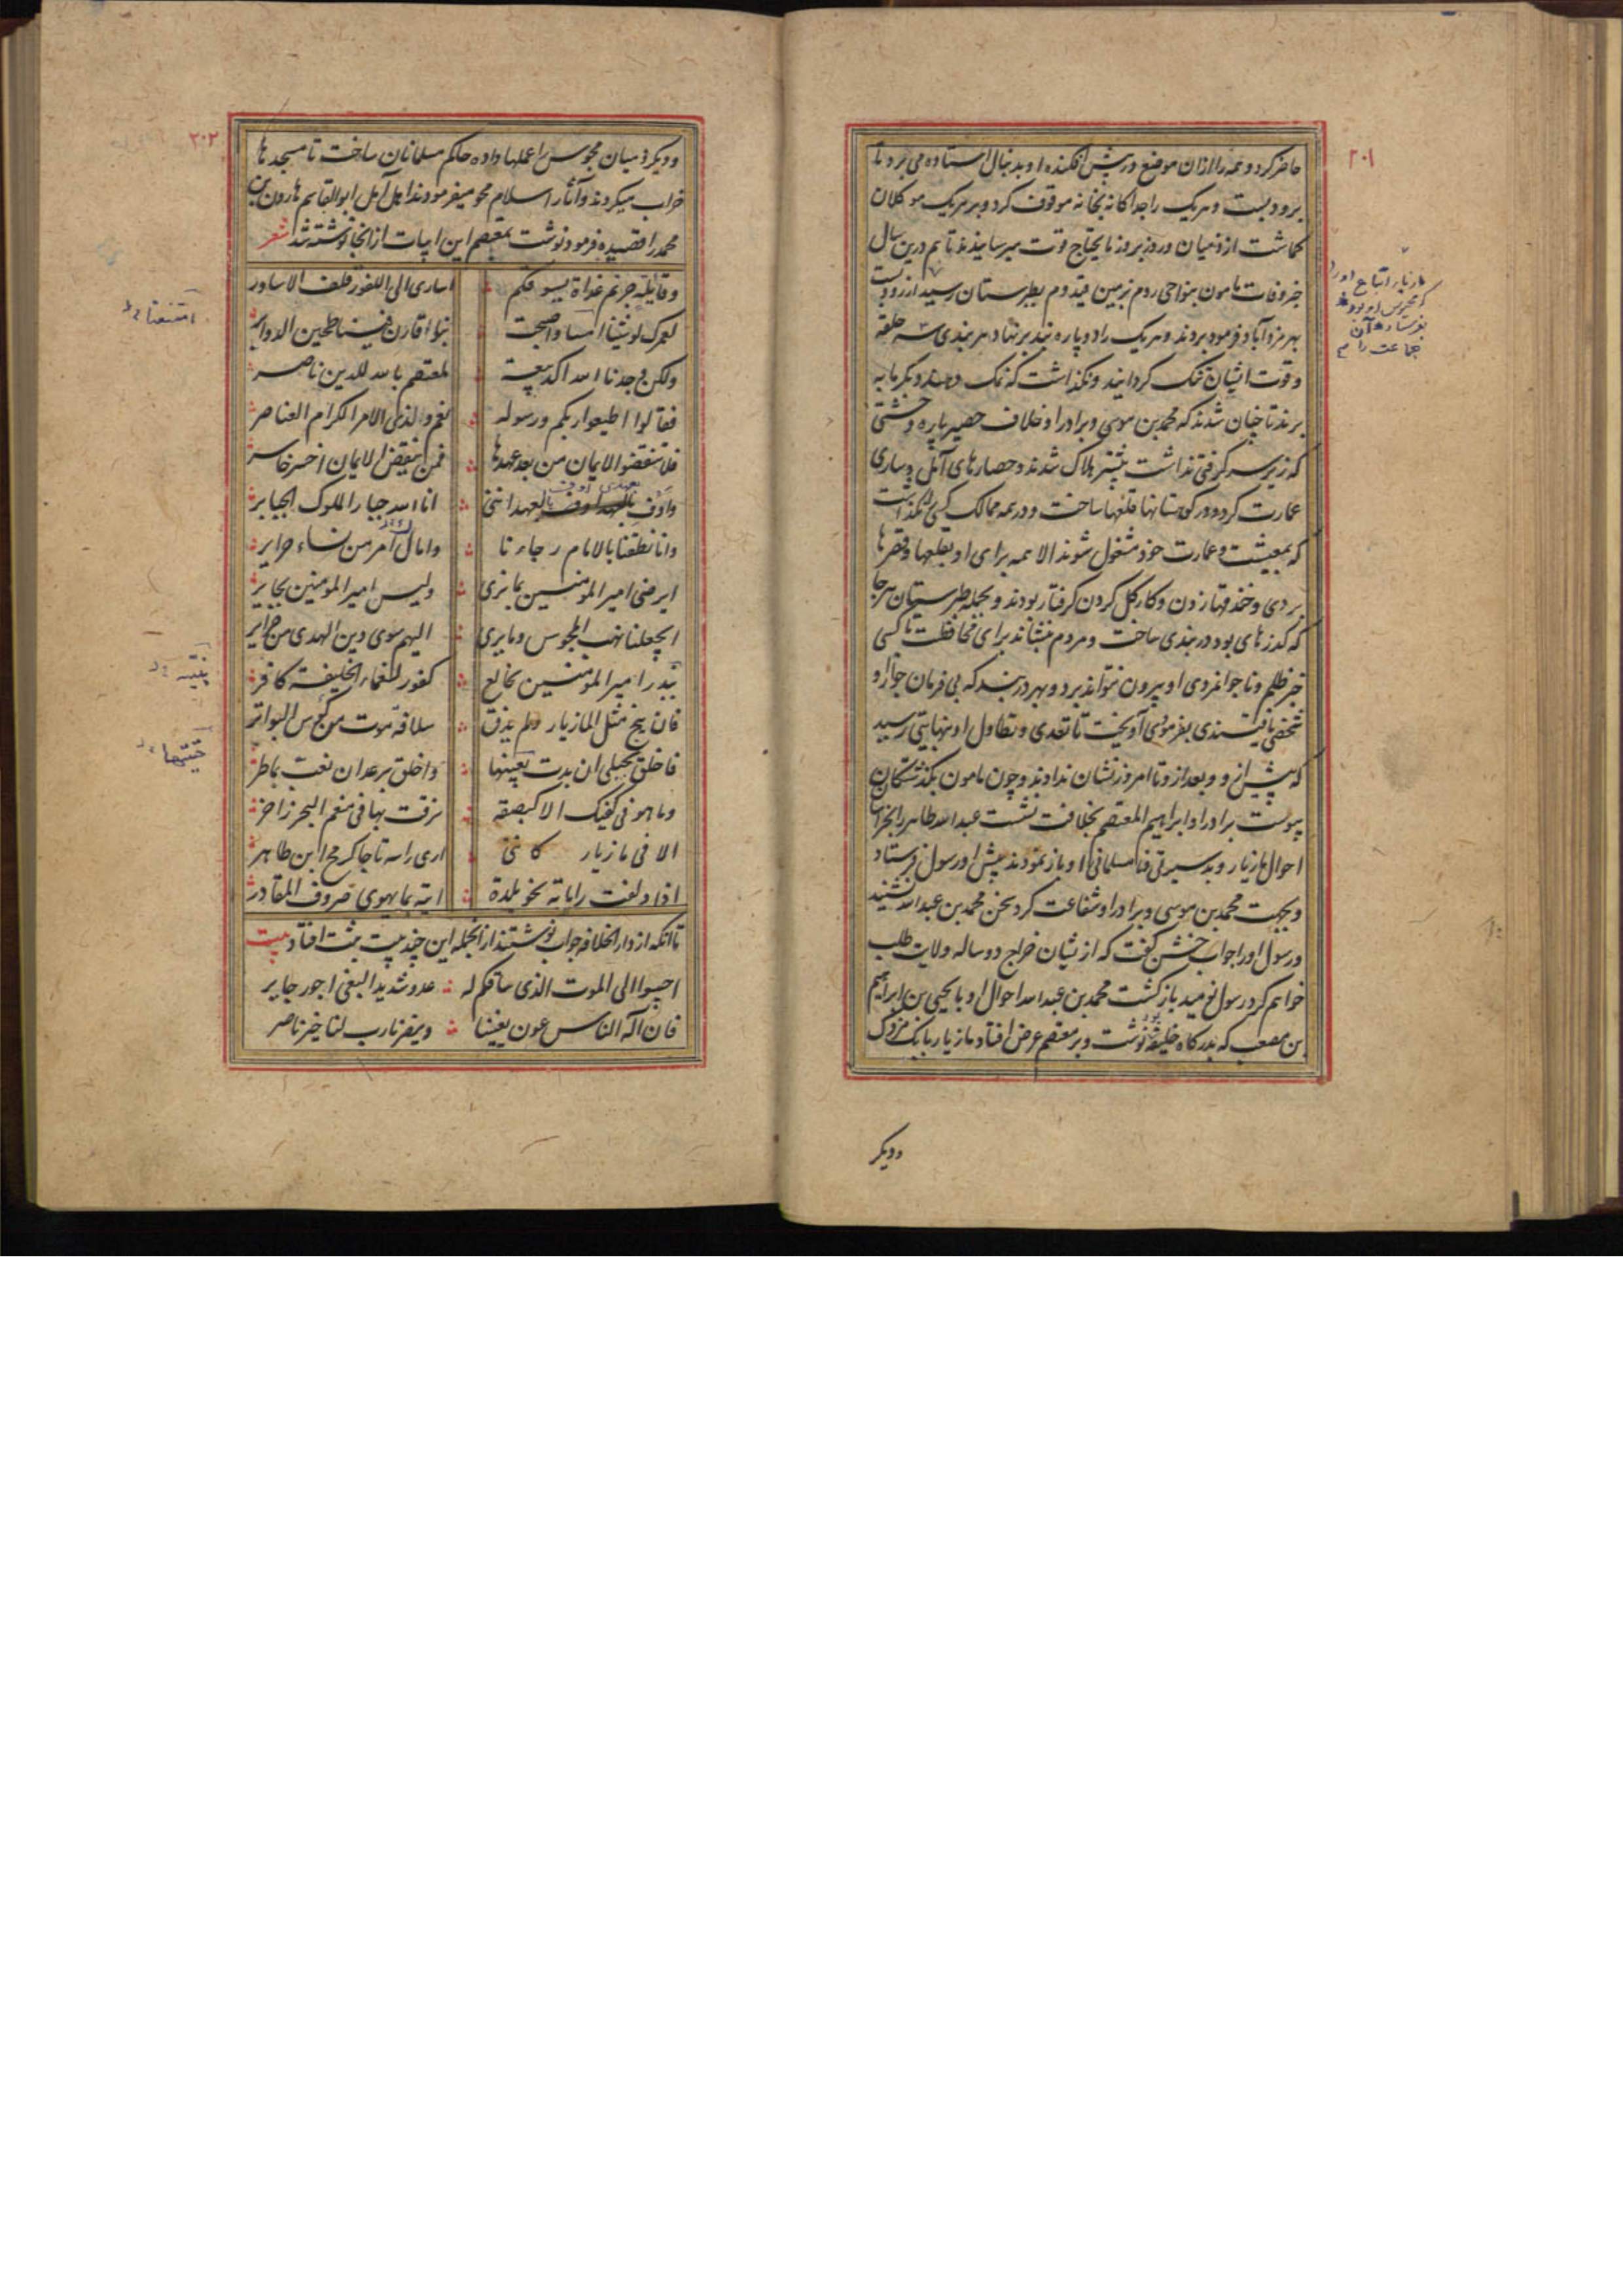 ۲۰۱
حاضر کرد و همه را ازان موضع در پیش افکنده او بدنبال استاده می برد تا
برود بست و هریک را جداکانه بخانه موقوف کرد و بر هریک موکلان
کماشت از ... میان و روز بروز مایحتاج قوت میرسانیدند تا هم درین سال
خبر وفات مامون بنواحی روم بزمین قیدوم بطبرستان رسید از رود بست
بهرمزدآباد فرمود بردند و هریک را دو پاره بند برنهاد هر بندی سه حلقه
و قوت ایشان تنک کردانید و نکذاشت که نمک دهند و کرمابه
برند تا چنان شدند که محمد بن موسی و برادر او خلاف حصیر پاره و خشتی
که زیر سر کرفتی نداشت بیشتر هلاک شدند و حصارهای آمل و ساری
عمارت کرد و در کوهستانها قلعها ساخت و در همه ممالک کسی نکذاشت
که بمعیشت و عمارت خود مشغول شوند الا همه برای او بقلعها و قصرها
بردی و خندقها زدن و کار کل کردن کرفتار بودند و بجمله طبرستان هرجا
که کذرهای بود دربندی ساخت و مردم بنشاند برای محافظت تا کسی
خبر ظلم و ناجوانمردی او بیرون نتواند برد و بهر دربند که بی فرمان جواز او
شخصی یافتندی بفرمودی آویخت تا تعدی و تطاول او بنهایتی رسید
که پیش ازو و بعد ازو تا امروز نشان ندادند و چون مامون بکذشتکان
پیوست برادر او ابراهیم المعتصم بخلافت نشست عبدالله طاهر را بخراسان
احوال مازیار و بد سیرتی فنا مسلمانی او باز نمودند پیش او رسول فرستاد
و بجهت محمد بن موسی و برادر او شفاعت کرد سخن محمد بن عبدالله نشنید
و رسول او را جواب خشن کفت که از شیان خراج دو ساله ولایت طلب
خواهم کرد رسول نومید باز کشت محمد بن عبدالله احوال او با یحیی بن ابراهیم
بن مصعب که بدرکاه خلیفه بود نوشت و بر معتصم عرض افتاد مازیار بابک مزدکی
ودیکر
مازیار اتباع اورا
که محبوس او بودند
بفرستاد و آن
جماعت را
۲۰۲
و دیکر ذمیان مجوس را عملها داده حاکم مسلمانان ساخت تا مسجدها
خراب میکردند و آثار اسلام محو میفرمودند اهل آمل ابوالقاسم هارون بن
محمد را قصیده فرمود نوشت بمعتصم این ابیات از آنجا نوشته شد شعر
وقایلة جرتم غداة یسوقکم اساری الی اللفور قلف الاساور
لعمرک لو شیئنا امسا واصبحت بنوا قارن فینا طحین الدوایر
ولکن وجدنا الله اکد بیعة لمعتصم بالله للدین ناصر
فقالوا اطیعوا ربکم ورسوله نعم والذی الامر الکرام العناصر
فلا تنقضوا الایمان من بعد عهدها فمن ینقض الایمان اخسر خاسر
واوف بالعهد اننی انا الله جبار الملوک الجبابر
وانا نطقنا بالامام رجاءنا وامال امر من نساء حرایر
ایرضی امیر المومنین بما نری ولیس امیر المومنین بجایر
ایجعلنا نهب المجوس وما یری الیهم سوی دین الهدی من جرایر
تبدر امیر المومنین بخالع کفور لنعماء الخلیفة کافر
فان ینج مثل المازیار ولم یذق سلافة موت من کؤس البواتر
فاخلق بحبلی ان بدت بعینها واخلق برعد ان نعت بماطر
وما هو فی کفیک الا کبصقة نرقت بها فی مفعم البحر زاخر
الا فی مازیار کانی اری راسه تاجا کرمح ابن طاهر
اذا دلفت رایاته نحو بلدة اتته بما یهوی صروف المقادر
تا آنکه از دار الخلافه جواب نوشتند از آنجمله این چند بیت ثبت افتاد بیت
اجیبوا الی الموت الذی ساقکم له عدو شدید البغی اجور جایر
فان اله الناس عون یغیثنا وینصرنا رب لنا خیر ناصر